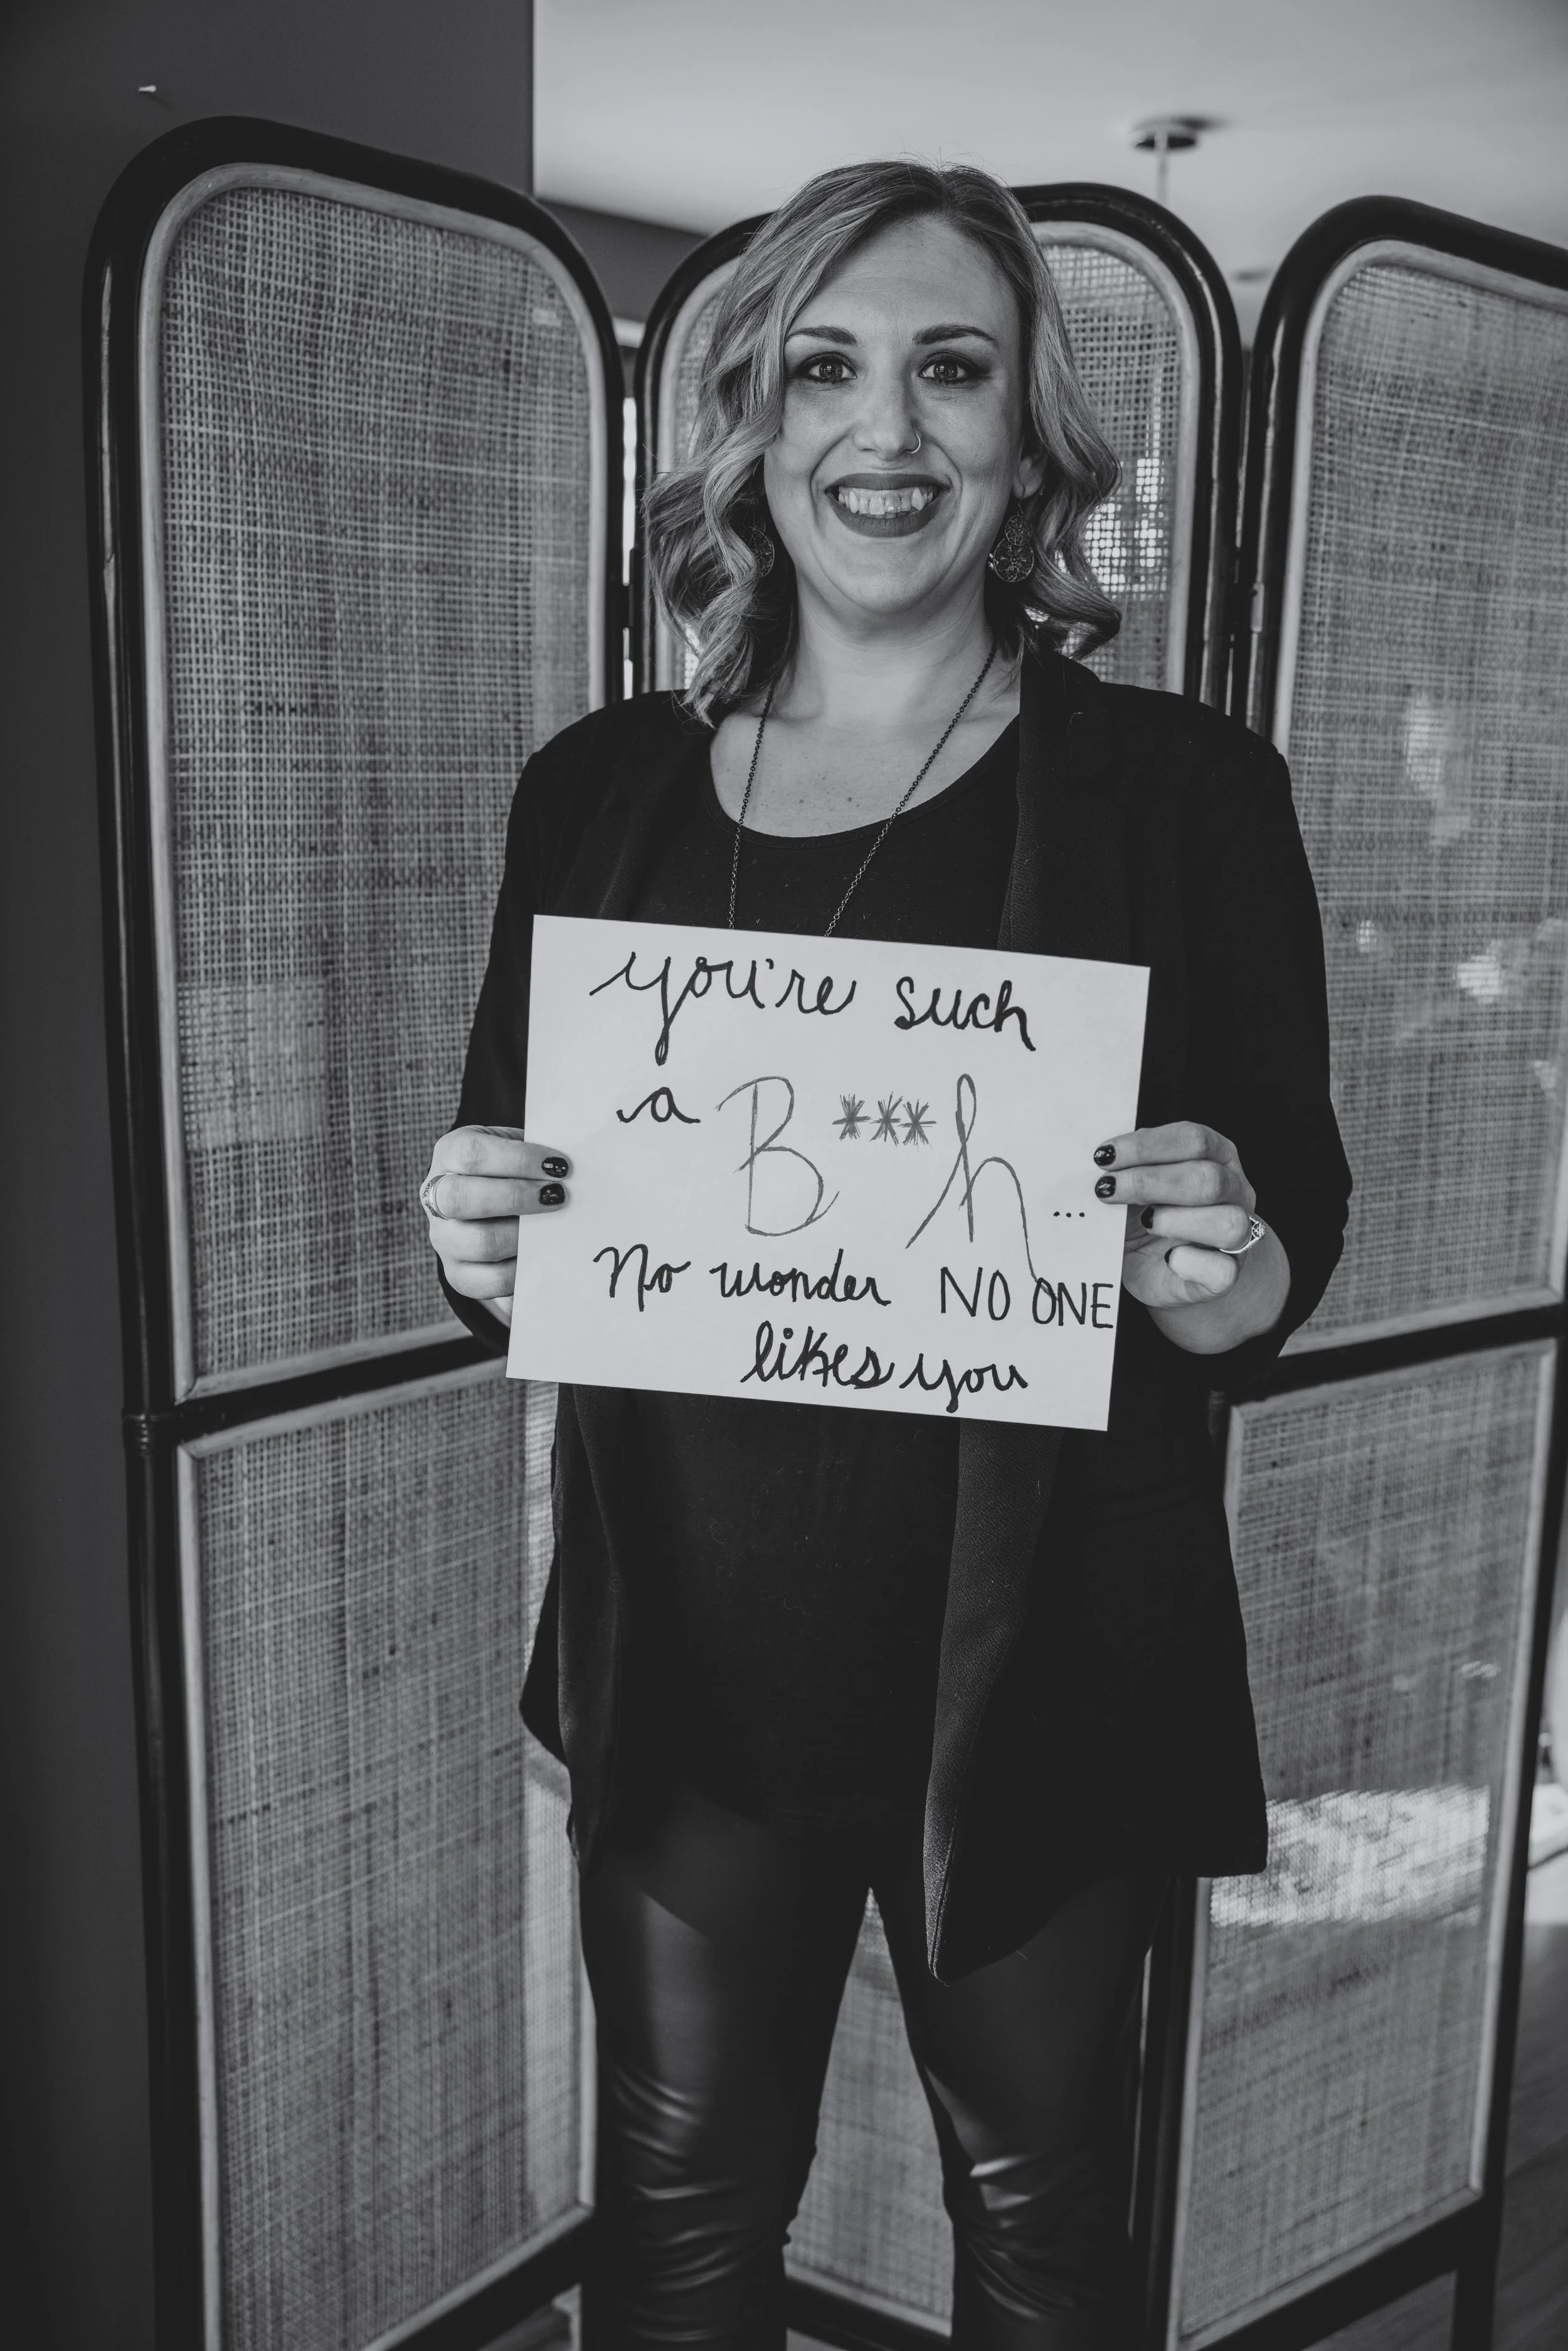 you're such
a B***h...
No wonder NO ONE
likes you